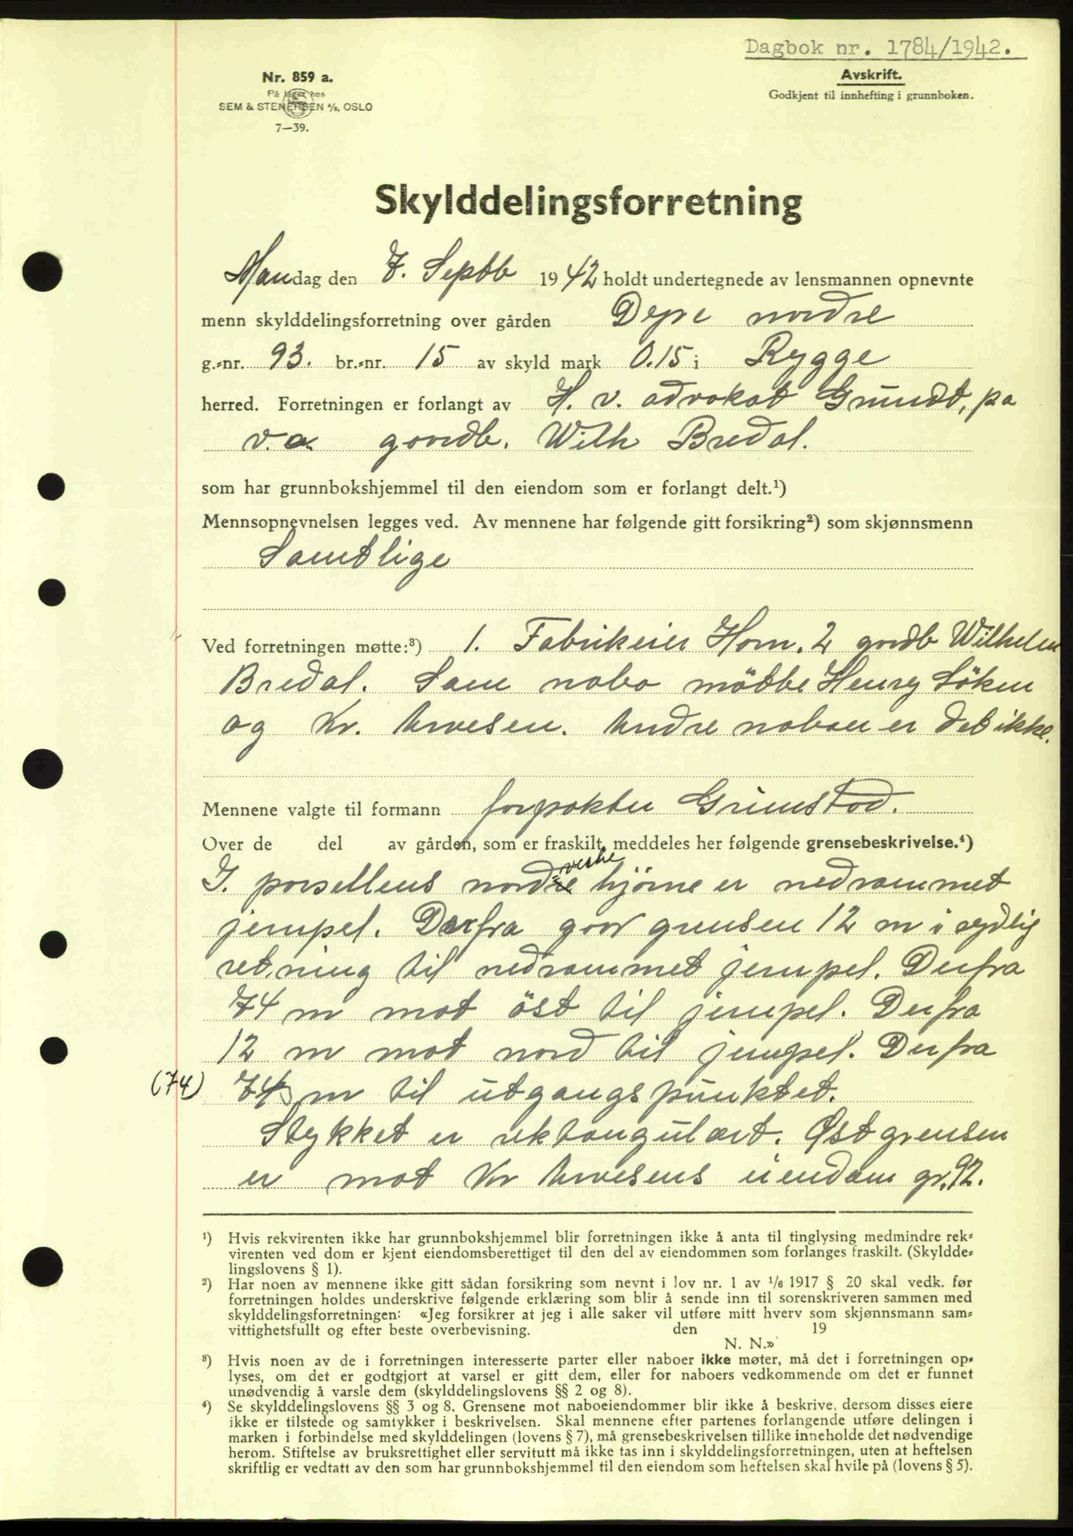 Dagbok nr. 1784/1942.
Avskrift.
Godkjent til innhefting i grunnboken.
Nr. 859 a.
På lager hos
SEM & STENERSEN A/S, OSLO
7—39.
Skylddelingsforretning
Mandag den 7. Septb 1942 holdt undertegnede av lensmannen opnevnte
menn skylddelingsforretning over gården Deje nordre
g.-nr. 93. br.-nr. 15 av skyld mark 0.15 i Rygge
herred. Forretningen er forlangt av H. r. advokat Grundt, på
v.a. gordb. Wilh Bredal.
som har grunnbokshjemmel til den eiendom som er forlangt delt.¹)
Mennsopnevnelsen legges ved. Av mennene har følgende gitt forsikring²) som skjønnsmenn
Samtlige
Ved forretningen møtte:³) 1. Fabrikeier Horn. 2 gordb Wilhelm
Bredal. Som nabo mötte Henry Söken
og Kr. Arvesen. Andre naboer er det ikke.
Mennene valgte til formann forpakter Grimstad.
Over de del av gården, som er fraskilt, meddeles her følgende grensebeskrivelse.⁴)
I. porsellens nordvestre hjörne er nedrammet
jernpel. Derfra går grensen 12 m i sydlig
retning til nedrammet jernpel. Derfra
74 m mot öst til jernpel. Derfra
12 m mot nord til jernpel. Derfra
(74) 74 m til utgangspunktet.
Stykket er rektangulært. Østgrensen
er mot Kr Arvesens eiendom gr. 92.
¹) Hvis rekvirenten ikke har grunnbokshjemmel blir forretningen ikke å anta til tinglysing medmindre rek-
virenten ved dom er kjent eiendomsberettiget til den del av eiendommen som forlanges fraskilt. (Skyldde-
lingslovens § 1).
²) Har noen av mennene ikke gitt sådan forsikring som nevnt i lov nr. 1 av 1/6 1917 § 20 skal vedk. før
forretningen holdes underskrive følgende erklæring som blir å sende inn til sorenskriveren sammen med
skylddelingsforretningen: «Jeg forsikrer at jeg i alle saker vil utføre mitt hverv som skjønnsmann sam-
vittighetsfullt og efter beste overbevisning. den 19
N. N.»
³) Hvis noen av de i forretningen interesserte parter eller naboer ikke møter, må det i forretningen op-
lyses, om det er godtgjort at varsel er gitt dem, eller for naboers vedkommende om det er funnet
unødvendig å varsle dem (skylddelingslovens §§ 2 og 8).
⁴) Se skylddelingslovens §§ 3 og 8. Grensene mot naboeiendommer blir ikke å beskrive, dersom disses eiere
ikke er tilstede og samtykker i beskrivelsen. Skal mennene efter partenes forlangende utføre delingen i
marken i forbindelse med skylddelingen (lovens § 7), må grensebeskrivelsen tillike inneholde det nødvendige
herom. Stiftelse av bruksrettighet eller servitutt må ikke tas inn i skylddelingsforretningen, uten at heftelsen
skriftlig er vedtatt av den som har grunnbokshjemmel til den eiendom som heftelsen skal hvile på (lovens § 5).